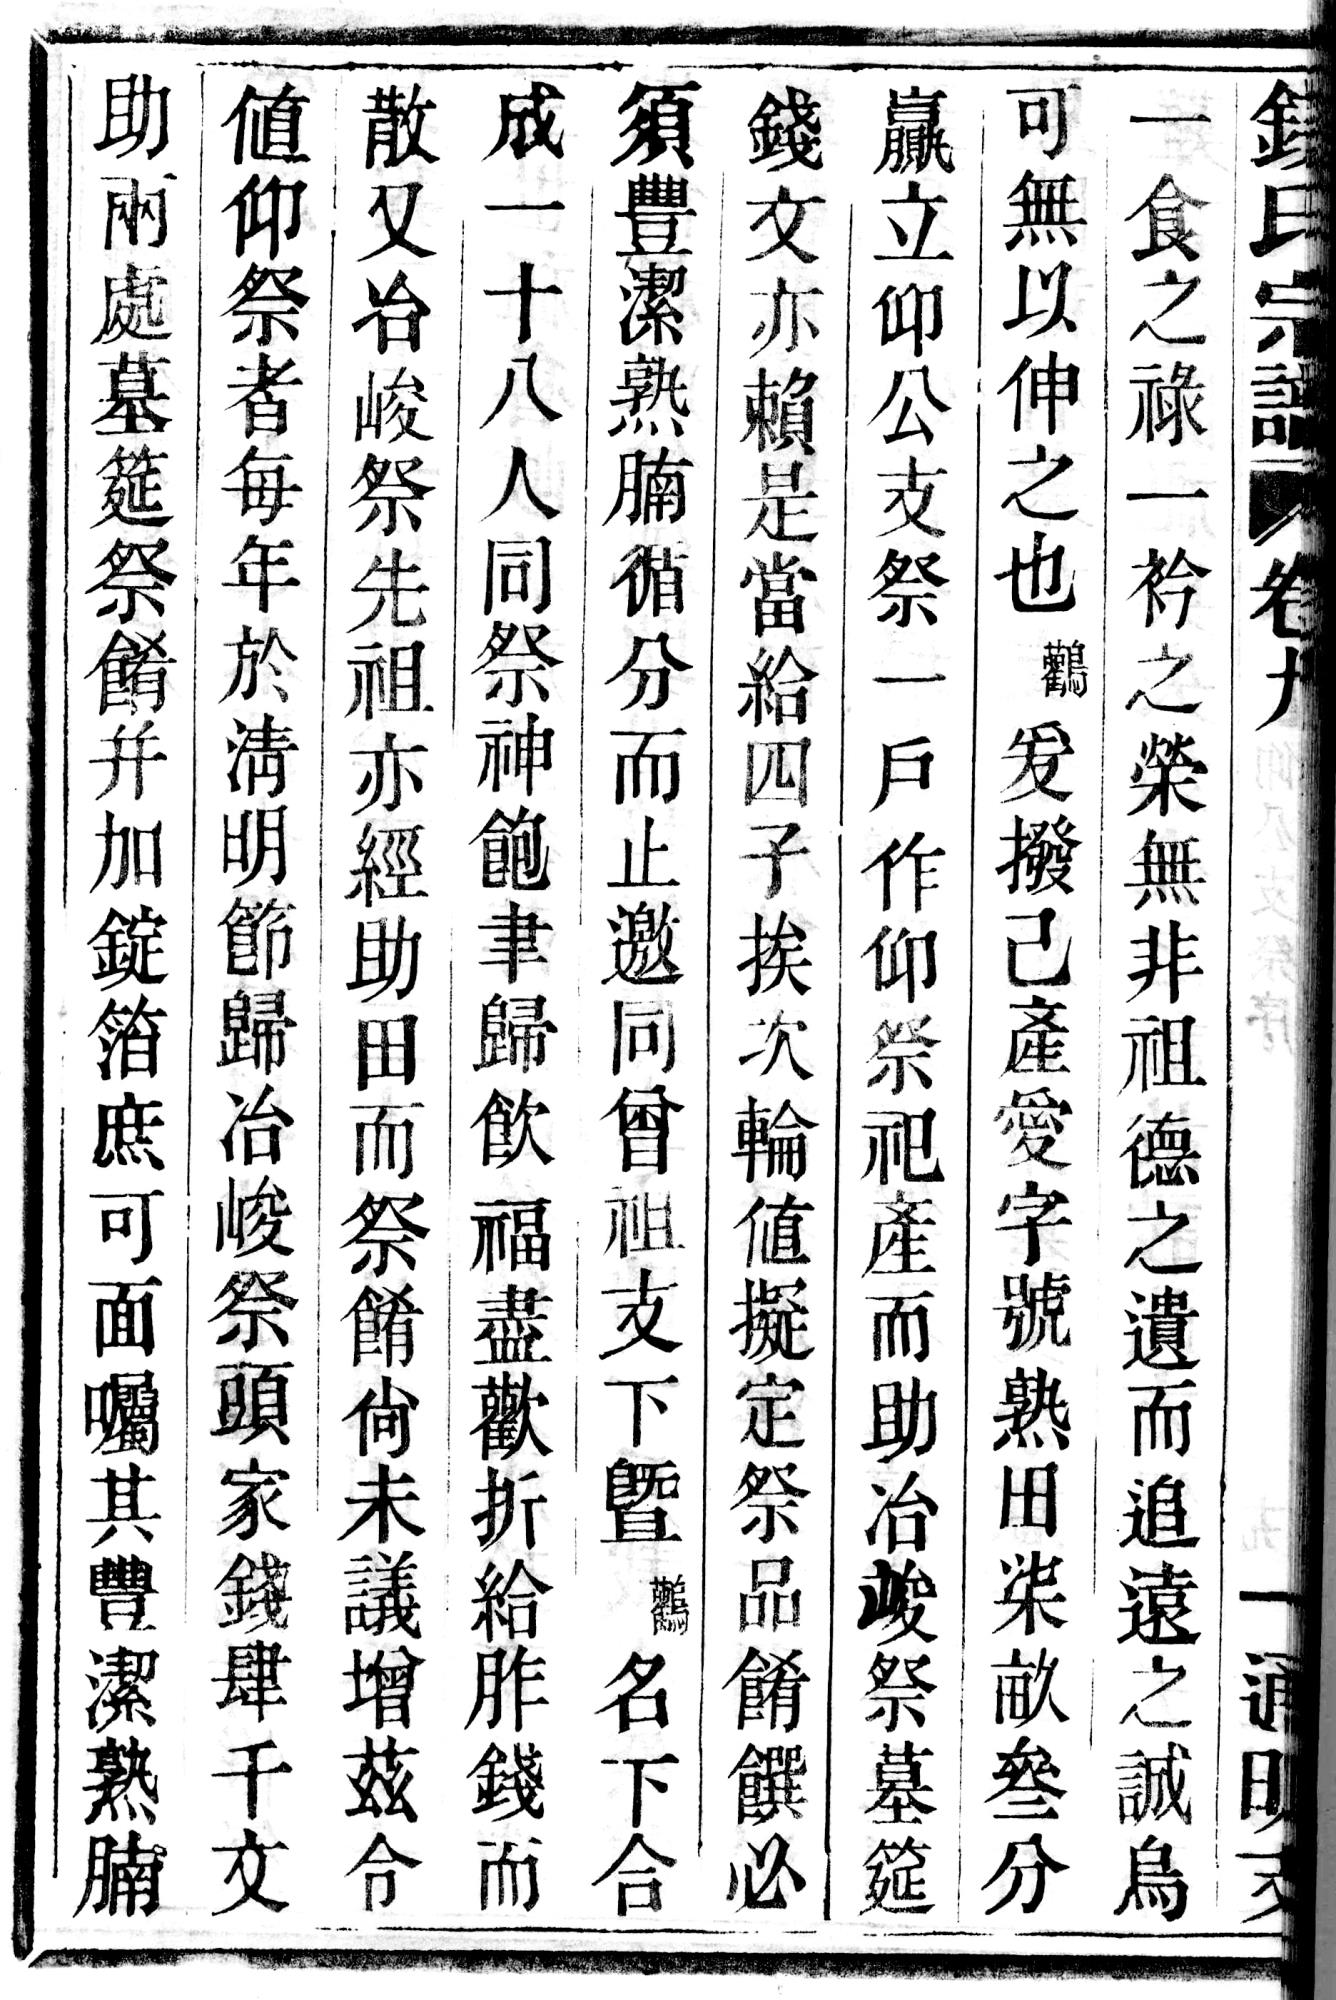 錢氏宗譜 卷九 一 通明天
一食之祿一衿之榮無非祖德之遺而追遠之誠烏
可無以伸之也鸛爰撥己產愛字號熟田柒畝叁分
贏立仰公支祭一戶作仰祭祀產而助冶峻祭墓筵
錢文亦賴是當給四子挨次輪值擬定祭品餚饌必
須豐潔熟腩循分而止邀同曾祖支下曁鸛名下合
成一十八人同祭神飽聿歸飲福盡歡折給胙錢而
散又冶峻祭先祖亦經助田而祭餚尙未議增茲令
値仰祭者每年於淸明節歸冶峻祭頭家錢肆千文
助兩處墓筵祭餚幷加錠箔庶可面囑其豐潔熟腩